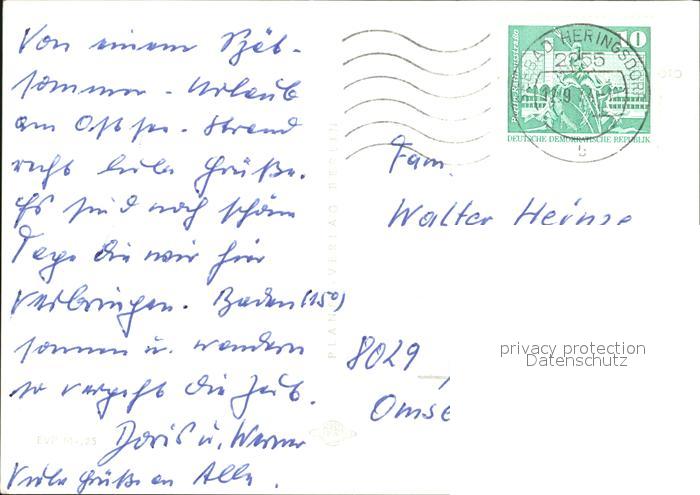 Von einem Spät-
sommer-Urlaub
am Ostsee-Strand
recht liebe Grüße.
Es sind noch schöne
Tage die wir hier
verbringen. Baden (15°)
sonnen u. wandern
so vergeht die Zeit.
Doris u. Werner
Viele Grüße an Alle.
Fam.
Walter Heinse
8029
Omse
PLAN VERLAG BERLIN
EVP M -,25
10
DEUTSCHE DEMOKRATISCHE REPUBLIK
SEEBAD HERINGSDORF
2255
b
privacy protection
Datenschutz